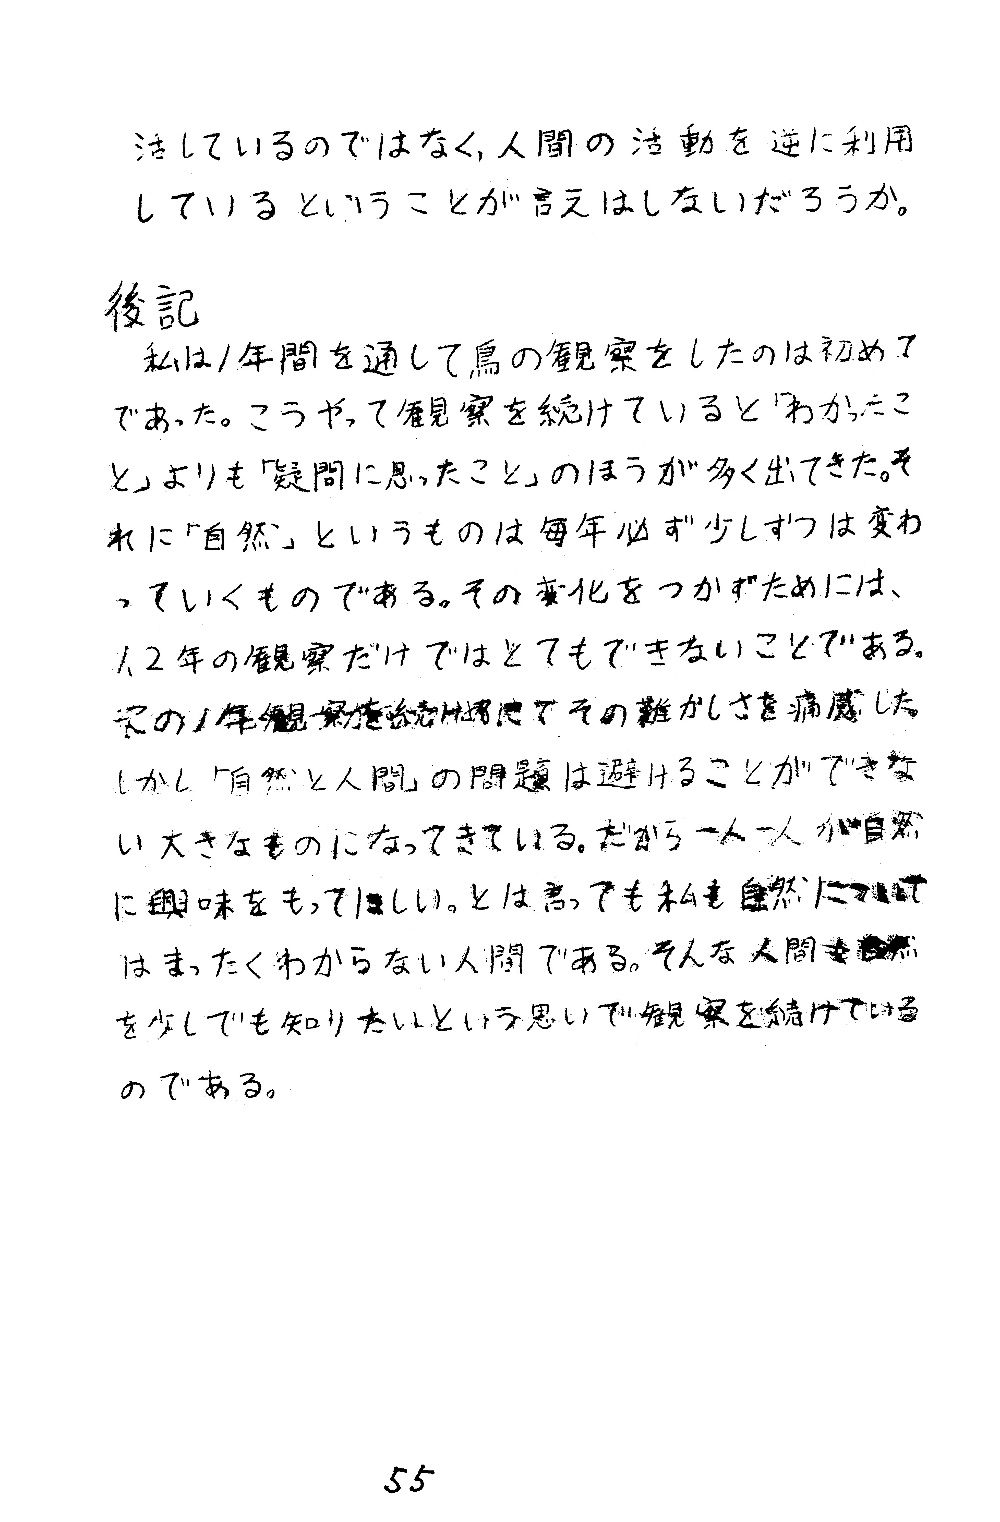 活しているのではなく,人間の活動を逆に利用
しているということが言えはしないだろうか。
後記
私は1年間を通して鳥の観察をしたのは初めて
であった。こうやって観察を続けていると「わかったこ
と」よりも「疑問に思ったこと」のほうが多く出てきた。そ
れに「自然」というものは毎年必ず少しずつは変わ
っていくものである。その変化をつかずためには、
1,2年の観察だけではとてもできないことである。
の1年観察を続けてその難かしさを痛感した。
しかし「自然と人間」の問題は避けることができな
い大きなものになってきている。だから一人一人が自然
に興味をもってほしい。とは言っても私も自然について
はまったくわからない人間である。そんな人間も自然
を少しでも知りたいという思いで観察を続けている
のである。
55